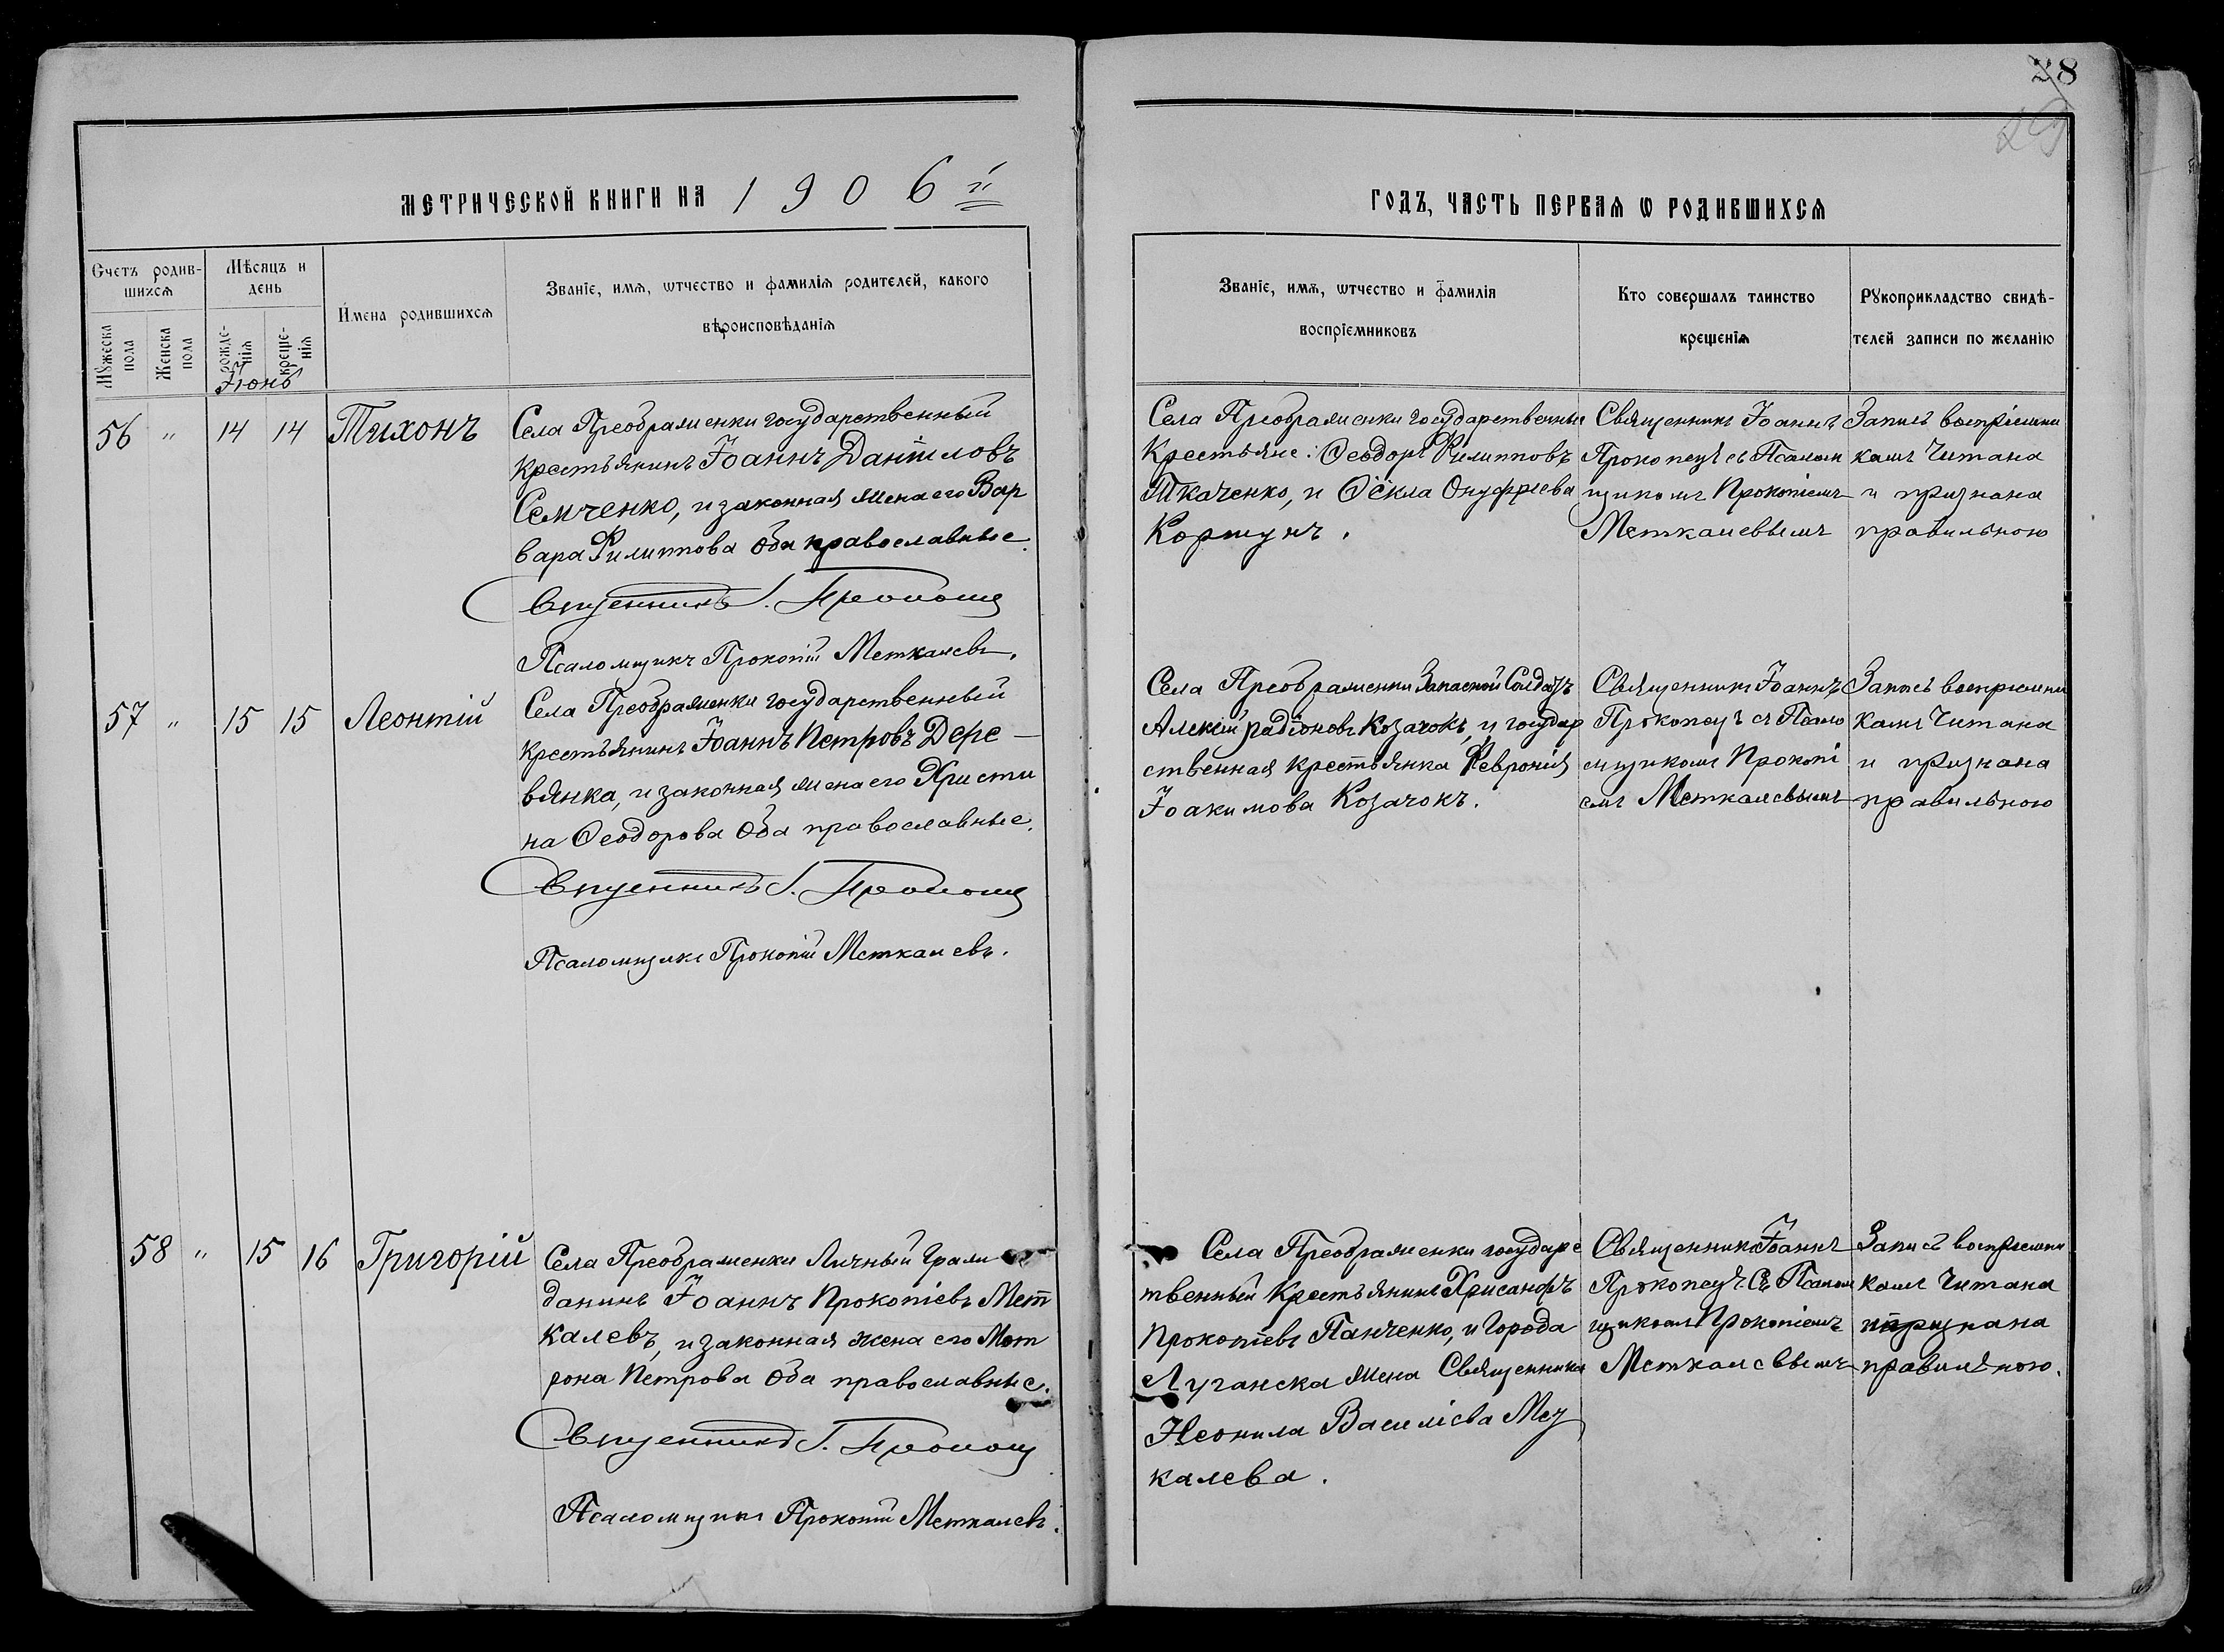 28
29
МЕТРИЧЕСКОЙ КНИГИ НА 1906й
ГОДЪ, ЧАСТЬ ПЕРВАЯ Ѡ РОДИВШИХСѦ
Счетъ родив-
шихсѧ
Мѣсяцъ и
день
Имена родившихсѧ
Званіе, имѧ, ѡтчество и фамиліѧ родителей, какого
вѣроисповѣданіѧ
Мꙋжеска
пола
Женска
пола
рожде-
нія
креще-
нія
Іюнь
Званіе, имѧ, ѡтчество и фамилія
воспріемниковъ
Кто совершалъ таинство
крещеніѧ
Рꙋкоприкладство свидѣ-
телей записи по желанію
56 " 14 14 Тихонъ
Села Преображенки государственный
крестьянинъ Іоаннъ Даніиловъ
Семченко, и законная жена его Вар
вара Филиппова оба православные.
Священникъ І. Прокопец
Псаломщикъ Прокопій Меткалевъ.
Села Преображенки государственные
Крестьяне: Ѳеодоръ Филипповъ
Ткаченко, и Ѳёкла Онуфріева
Коршунъ.
Священникъ Іоаннъ
Прокопецъ съ Псалом
щикомъ Прокопіемъ
Меткалевымъ
Запись воспріемни
камъ Читана
и признана
правильною
57 " 15 15 Леонтій
Села Преображенки государственный
крестьянинъ Іоаннъ Петровъ Дере-
вянка, и законная жена его Христи
на Ѳеодорова оба православные.
Священникъ І. Прокопец
Псаломщикъ Прокопій Меткалевъ.
Села Преображенки Запасной Солдатъ
Алексій радіоновъ Козачокъ, и государ
ственная крестьянка Февронія
Іоакимова Козачокъ.
Священникъ Іоаннъ
Прокопецъ съ Псало
мщикомъ Прокопі
емъ Меткалевымъ
Запись воспріемни
камъ Читана
и признана
правильною
58 " 15 16 Григорій
Села Преображенки Личный Граж
данинъ Іоаннъ Прокопіевъ Мет
калевъ, и законная жена его Мот
рона Петрова оба православные.
Священникъ І. Прокопец
Псаломщикъ Прокопій Меткалевъ.
Села Преображенки государс
твенный Крестьянинъ Хрисанфъ
Прокопіевъ Панченко, и Города
Луганска жена Священника
Неонила Василіева Мет
калева.
Священникъ Іоаннъ
Прокопецъ Съ Псалом
щикомъ Прокопіемъ
Меткалевымъ
Запись воспріемни
камъ Читана
признана
правильною.